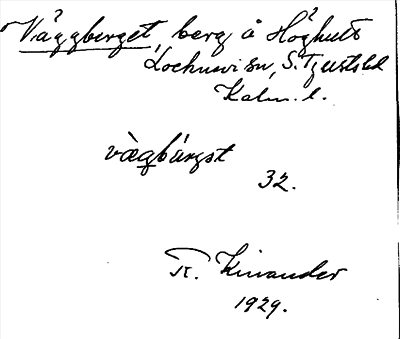 Väggberget, berg å Höghult
Locknevi sn, S. Tjusts hd
Kalm. l.
vägbärgst
32.
R. Kinander
1929.